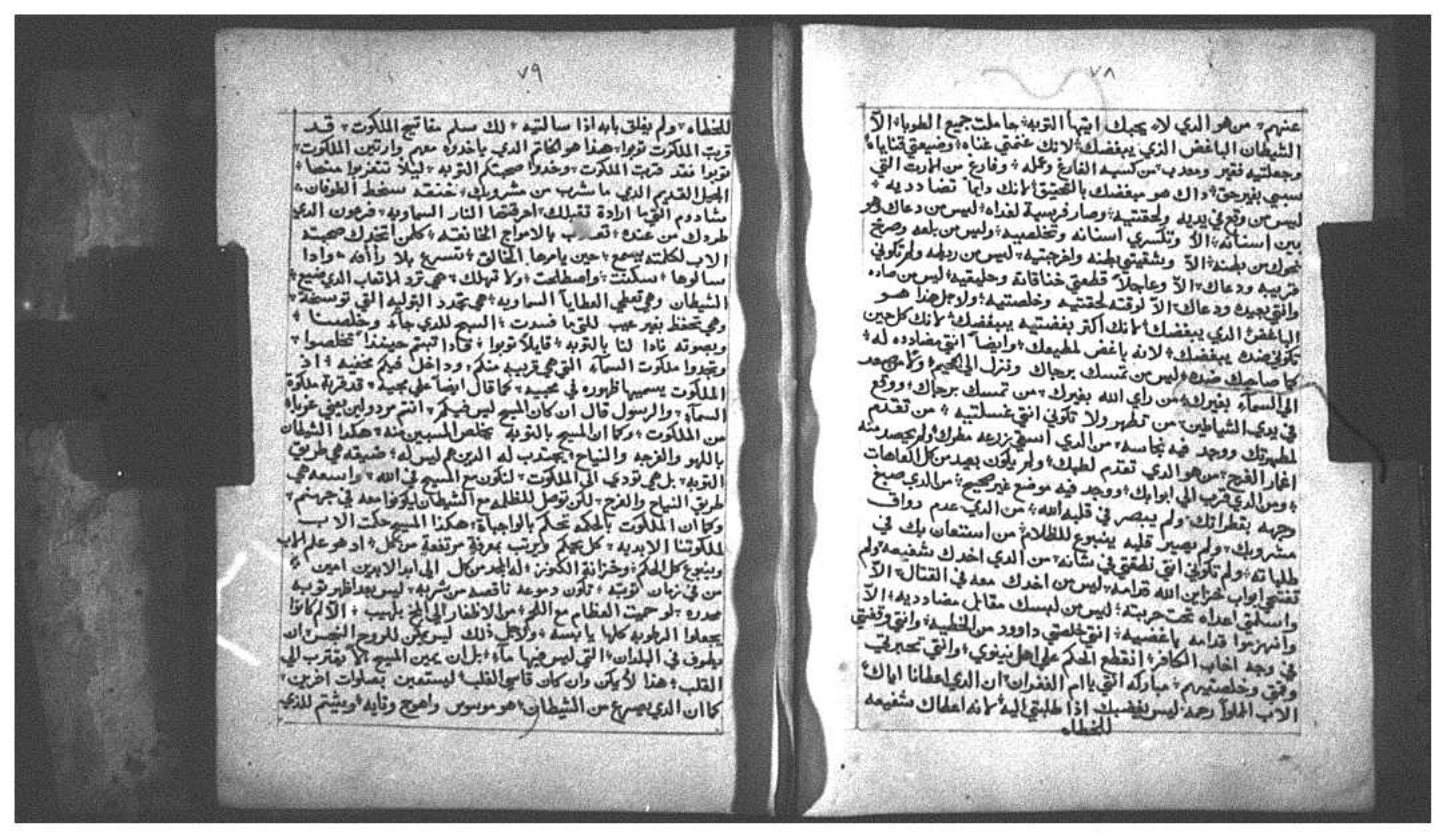 ٧٨
عنهم من هو الدي لا يحبك ايتها التوبه حاملت جميع الطوبا الاّ
الشيطان الباغض الذي يبغضك لانك غنمتي غناه وضيعتي قناياه
وجعلتيه فقير ومعدب من كسبه الفارغ وعمله وفارغ من المارت التي
سبي بغير حق داك هو مبغضك بالتحقيق لانك دايماً تضاددیه
ليس من وقع في يديه ولحقتيه وصار فريسة لغداه ليس من دعاك وهو
بين اسنانه الاّ وتكسري اسنانه وتخلصيه وليس من بلعه وصرخ
نحوك من بطنه الاّ وشقيتي بطنه واخرجتيه ليس من ربطه ولم تكوني
قريبه ودعاك الاّ وعاجلاً قطعتي خناقاته وحليتيه ليس من صاده
وانتي بعيده ودعاك الاّ لوقته لحقتيه وخلصتيه ولاجل هذا هو
الباغض الدي يبغضك لانك اكتر بغضتيه يبغضك لانك كل حين
تكوني ضده يبغضك لانه باغض لمطيعك وايضاً انتي مضادده له
كما صاحبك ضده ليس من تمسك برجاك ونزل الي الجحيم ولا من صعد
الي السماء بغيرك من راي الله بغيرك من تمسك برجاك ووقع
في يدي الشياطين من تطهر ولا تكوني انتي غسلتيه من تقدم
لمطهرتك ووجد فيه نجاسه من الدي اسقي زرعه مطرك ولم يحصد منه
اغمار الفرح من هو الدي تقدم لطبك ولم يكون بعيد من كل العاهات
ومن الدي قرب الي ابوابك ووجد فيه موضع غير صحيح من الدي صبغ
وجهه بقطراتك ولم يبصر في قلبه الله من الدي عدم دواف
مشروبك ولم يصير قلبه ينبوع للظلام من استعان بك في
طلباته ولم تكوني انتي تلحقي في شانه من الدي اخدك شفيعه ولم
تفتحي ابواب خزاين الله قدامه ليس من اخدك معه في القتال الاّ
واسلمتي اعداه تحت حربته ليس من لبسك مقابل مضادديه الاّ
وانهزموا قدامه باغضيه انتي خلصتي داوود من الخطيه وانتي وقفتي
في وجه اخاب الكافر انقطع الحكم علي اهل نينوي وانتي تجبرتي
وقفتي وخلصتيهم مباركه انتي يا ام الغفران ان الدي اعطانا اياك
الاب الملوا رحمه ليس يغصبك اذا طلبتي اليه لانه اعطاك شفيعه
للخطاه
٧٩
للخطاه ولم يغلق بابه اذا سالتيه لك سلم مفاتيح الملكوت قد
قربت الملكوت توبوا هذا هو الخاتم الدي ياخدوه معهم وارتين الملكوت
توبوا فقد قربت الملكوت وخدوا صحبتكم التوبه ليلاّ تتعزبوا منها
الجيل القديم الدي ما شرب من مشروبك خنقه سخط الطوفان
سادوم التي ما ارادة تقبلك احرقتها النار السماويه فرعون الدي
طردك من عنده بالامواج الخانقه كلمن اتخدك صحبته
الاب لكلمته يسمع حين يامرها الخالق تسرع بلا رأفه وادا
سالوها سكنت واصطلحت ولا تهلك هي ترد الاتعاب الدي ضيع
الشيطان وهي تعطي العطايا السماويه هي تجدد التوليه التي توسخة
وهي تحفظ بغير عيب للتي ما فسدت المسيح للدي جاء وخلصنا
وبصوته نادا لنا بالتوبه قايلاً توبوا فادا تبتم حينئذاً تخلصوا
وتجدوا ملكوت السماء التي هي قريبه منكم وداخل فيكم مخفيه اذ
الملكوت يسميها ظهوره في مجيه كما قال ايضاً علي مجيه قد قربة ملكوة
السماء والرسول قال ان كان المسيح ليس فيكم انتم مردولين يعني غربا
من الملكوت وكما ان المسيح بالتوبه يخلص المسبيين منه هكدا الشيطان
باللهو والفرجه والنياح يجتدب له الدين هم ليس له ضيقه هي طريق
التوبه بل هي تودي الي الملكوت لنكون مع المسيح في الله واسعه هي
طريق النياح والفرح لكن توصل للظلمه مع الشيطان ليكونوا معه في جهنم
وكما ان الملكوت بالحكمه تحكم بالواجباة هكذا المسيح حكمت الاب
لملكوتنا الابديه كل يحكم ويرتب بمعرفة مرتفعة من كل اد هو علم الاب
وينبوع كل الحكم وخزانة الكنوز له المجد من كل الي ابد الابدين امين
من في زمان توبته تكون دموعه ناقصه من شربه ليس بعد اظهر توبه
صدره لو حميت العظام مع اللحم من الاظفار الي المخ بلهيب الاّ لم كانوا
يجعلوا الرطوبه كلها يابسه ولاجل ذلك ليس يمكن للروح النجس ان
يطوف في البلدان التي ليس فيها ماء بل ان يمين المسيح بالاّ يقترب الي
القلب هذا لا يمكن وان كان قاسي القلب ليستعين بصلوات اخرين
كما ان الدي يصرع من الشيطان هو موسوس واهوج وتايه ويشتم للذي